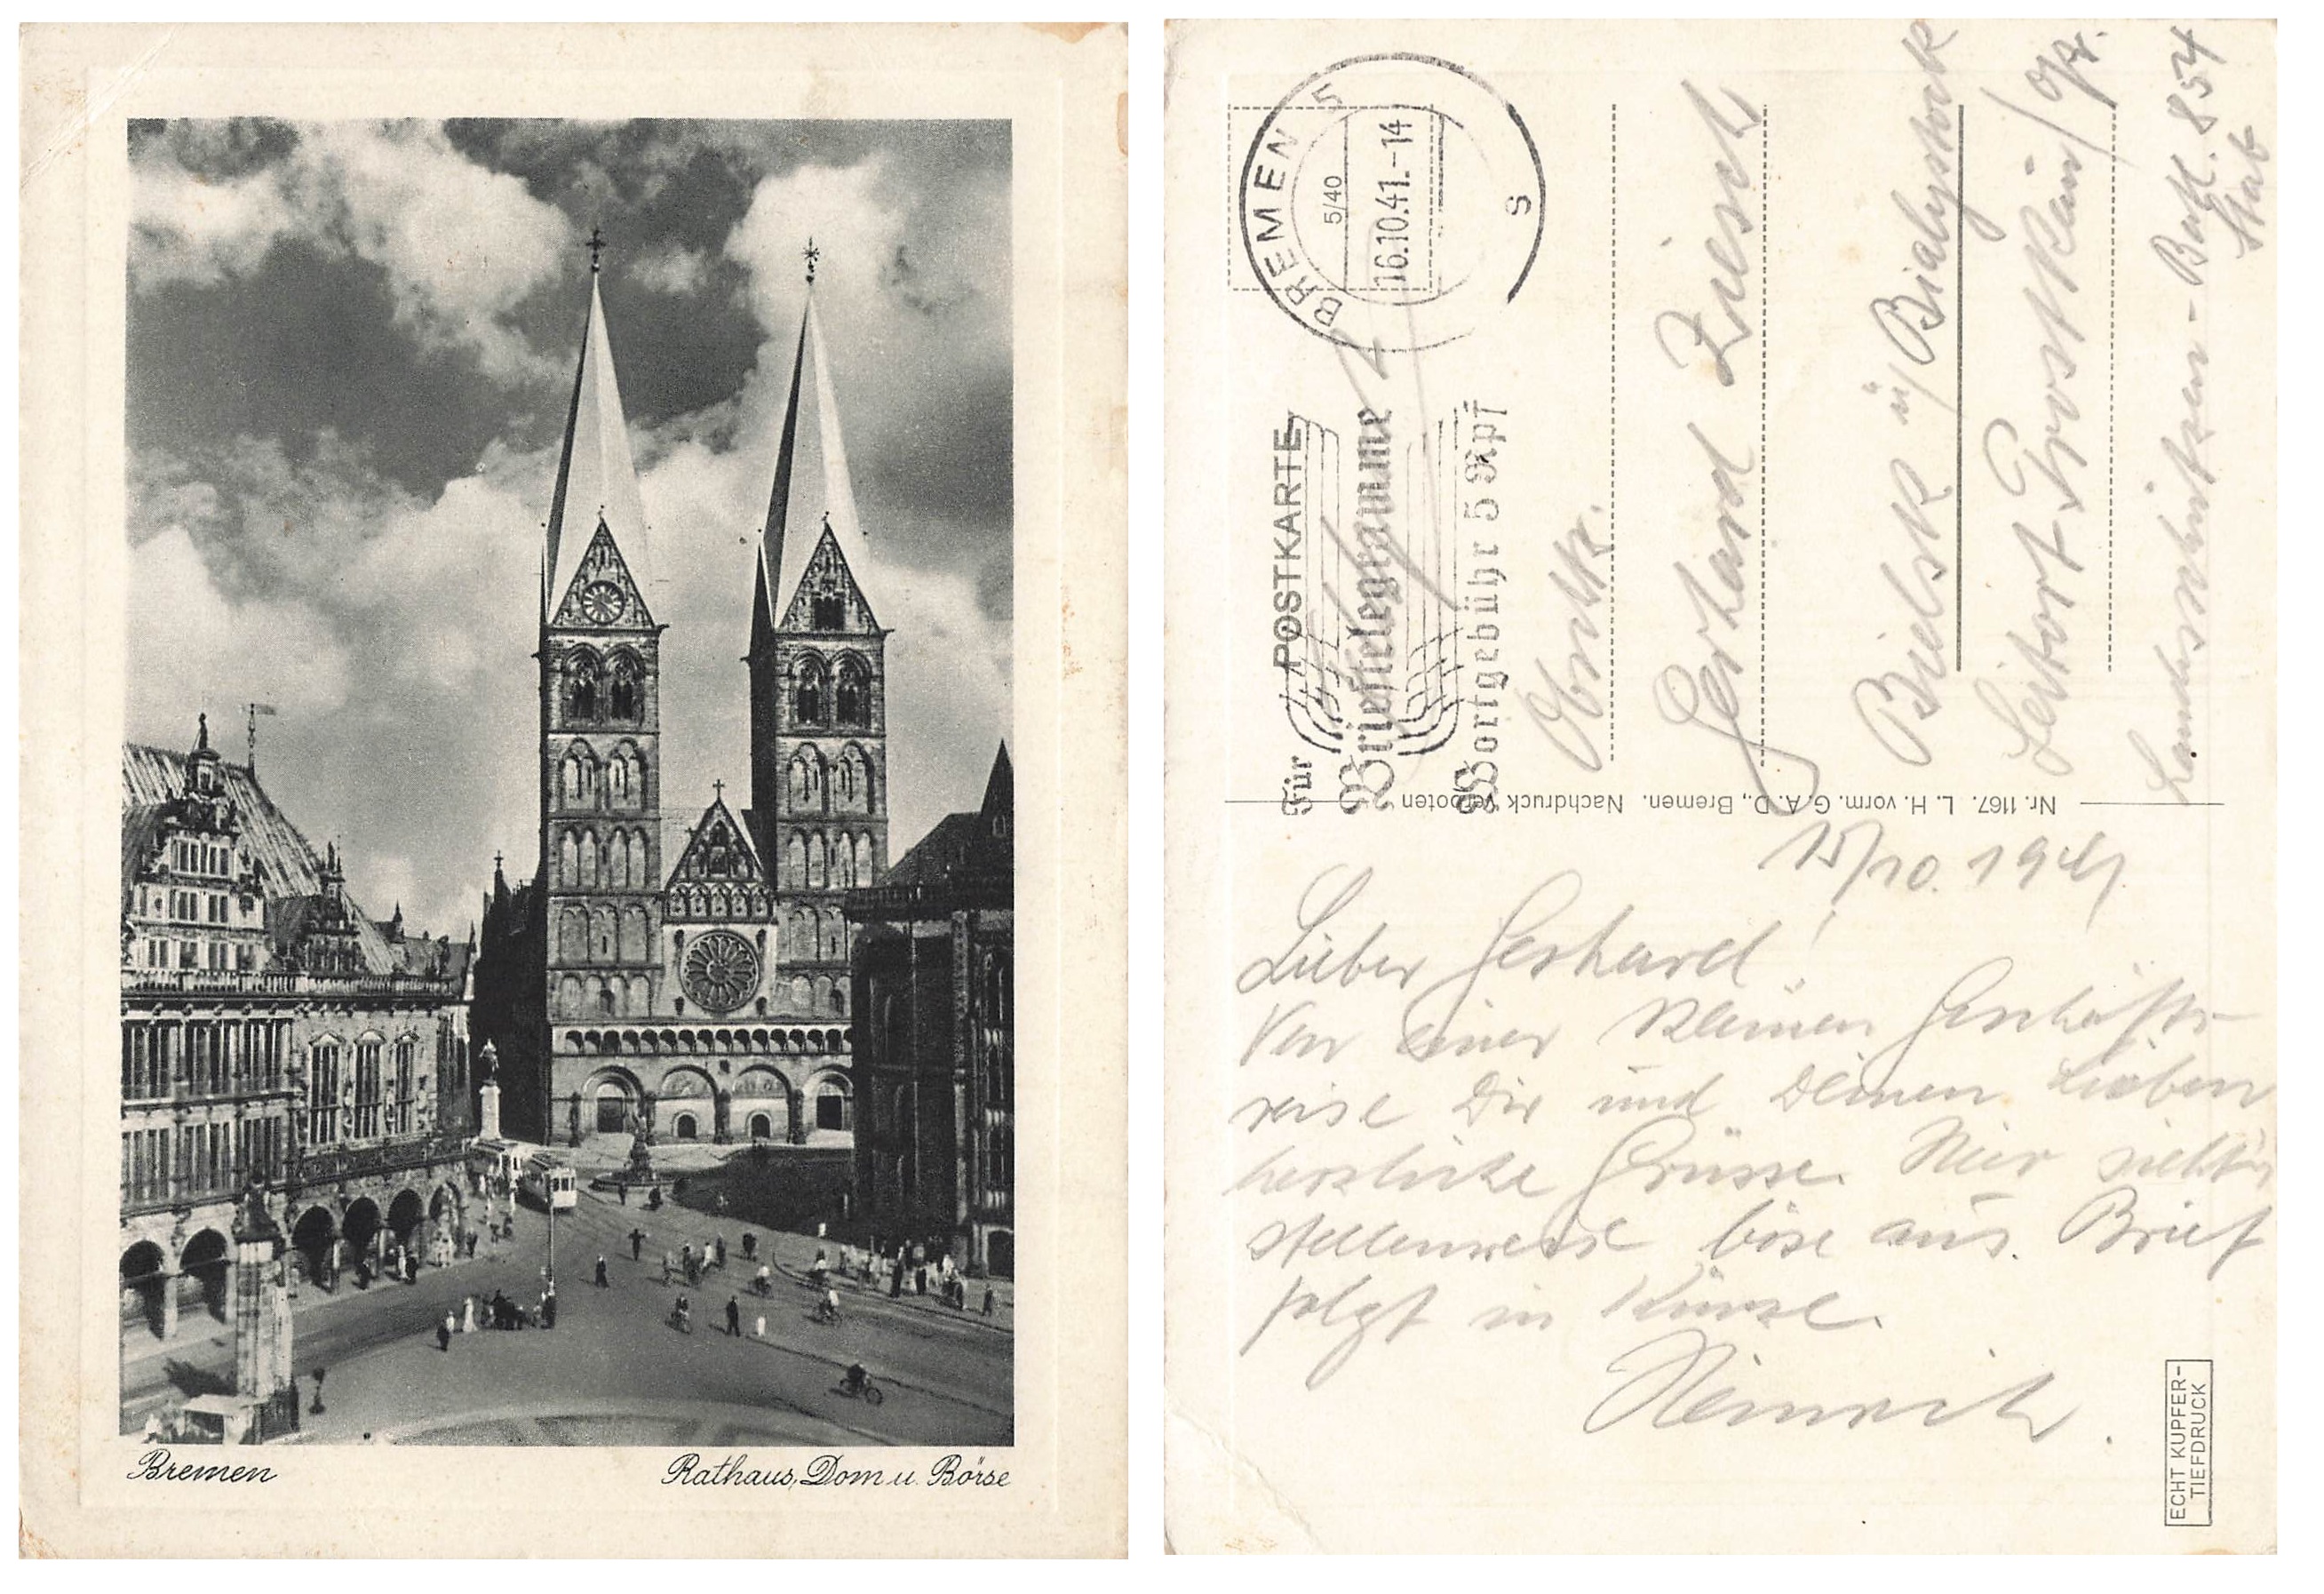 Bremen
Rathaus, Dom u. Börse
BREMEN 5
5/40
16.10.41.-14
S
POSTKARTE
Für
Brieftelegramme
Wortgebühr 5 Rpf
Obstlt.
Gerhard Ziesch
Bielsk ü/Bialystock
Leitort Prostken/Opr.
Landesschützen-Batl. 854
Stab
Nr. 1167. L. H. vorm. G. A. D., Bremen. Nachdruck verboten
15/10. 1941
Lieber Gerhard!
Von einer kleinen Geschäfts-
reise Dir und Deinen Lieben
herzliche Grüsse. Hier sieht's
stellenweise böse aus. Brief
folgt in Kürze.
Heinrich.
ECHT KUPFER-
TIEFDRUCK